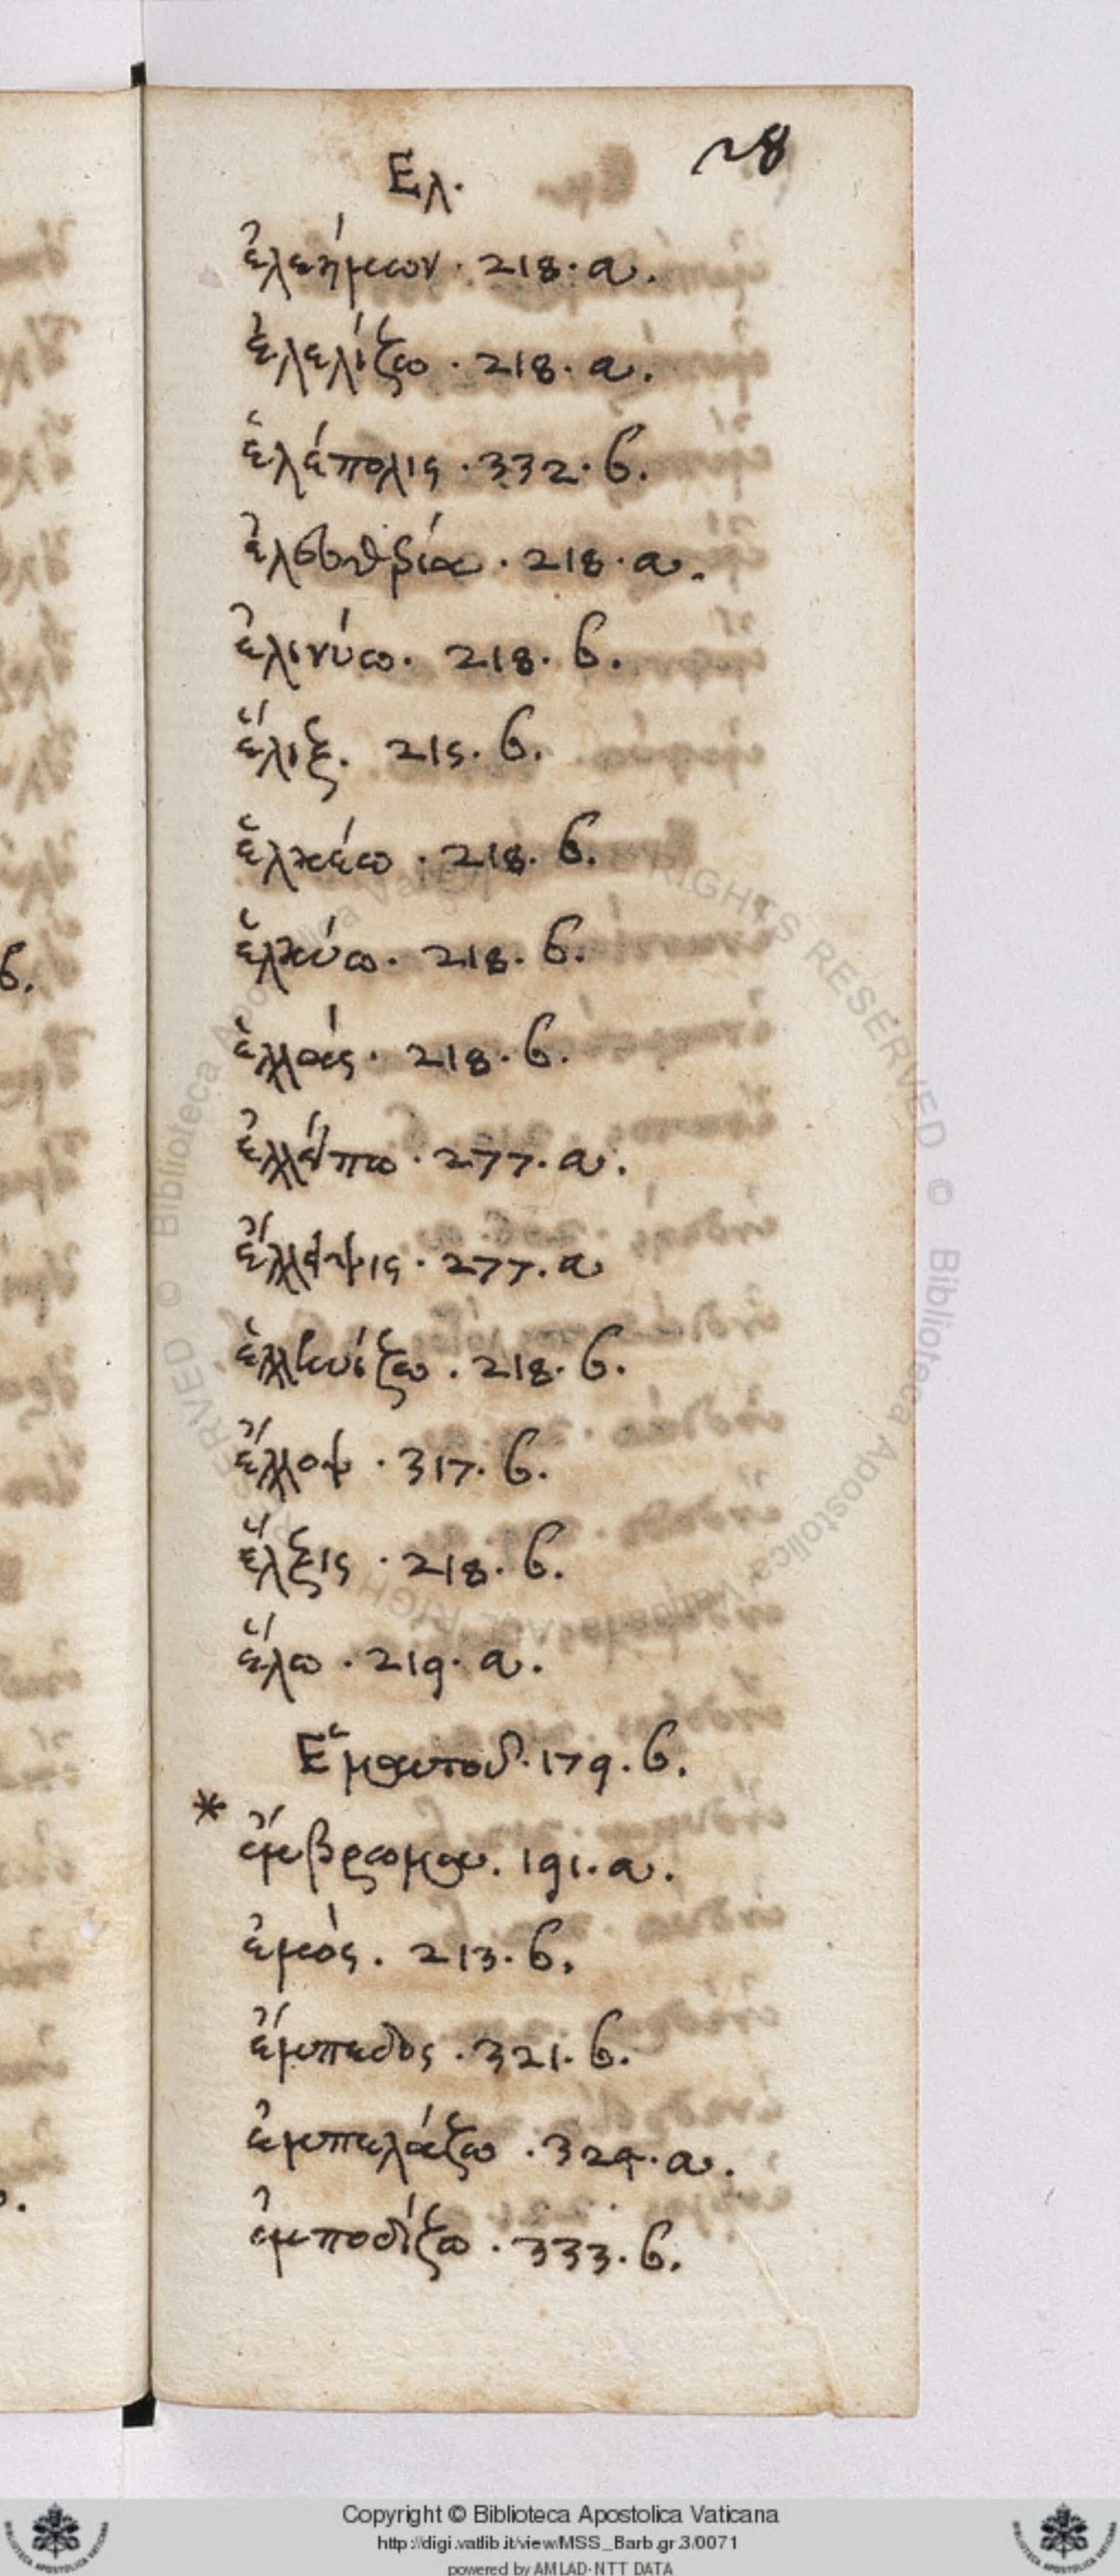 28
Ελ.
ἐλεήμων · 218 · a.
ἐλελίζω · 218 · a.
ἑλέπολις · 332 · b.
ἐλευθερία · 218 · a.
ἐλινύω · 218 · b.
ἕλιξ. 215 · b.
ἑλκέω · 218 · b.
ἑλκύω · 218 · b.
ἑλλός · 218 · b.
ἐλλείπω · 277 · a.
ἔλλειψις · 277 · a
ἑλληνίζω · 218 · b.
ἔλλοψ · 317 · b.
ἕλξις · 218 · b.
ἕλω · 219 · a.
179 · b.
* 191 · a.
ἐμός. 213 · b.
ἔμπεδος · 321 · b.
ἐμπελάζω · 324 · a.
ἐμποδίζω · 333 · b.
b.
Copyright © Biblioteca Apostolica Vaticana
http://digi.vatlib.it/view/MSS_Barb.gr.3/0071
powered by AMLAD-NTT DATA